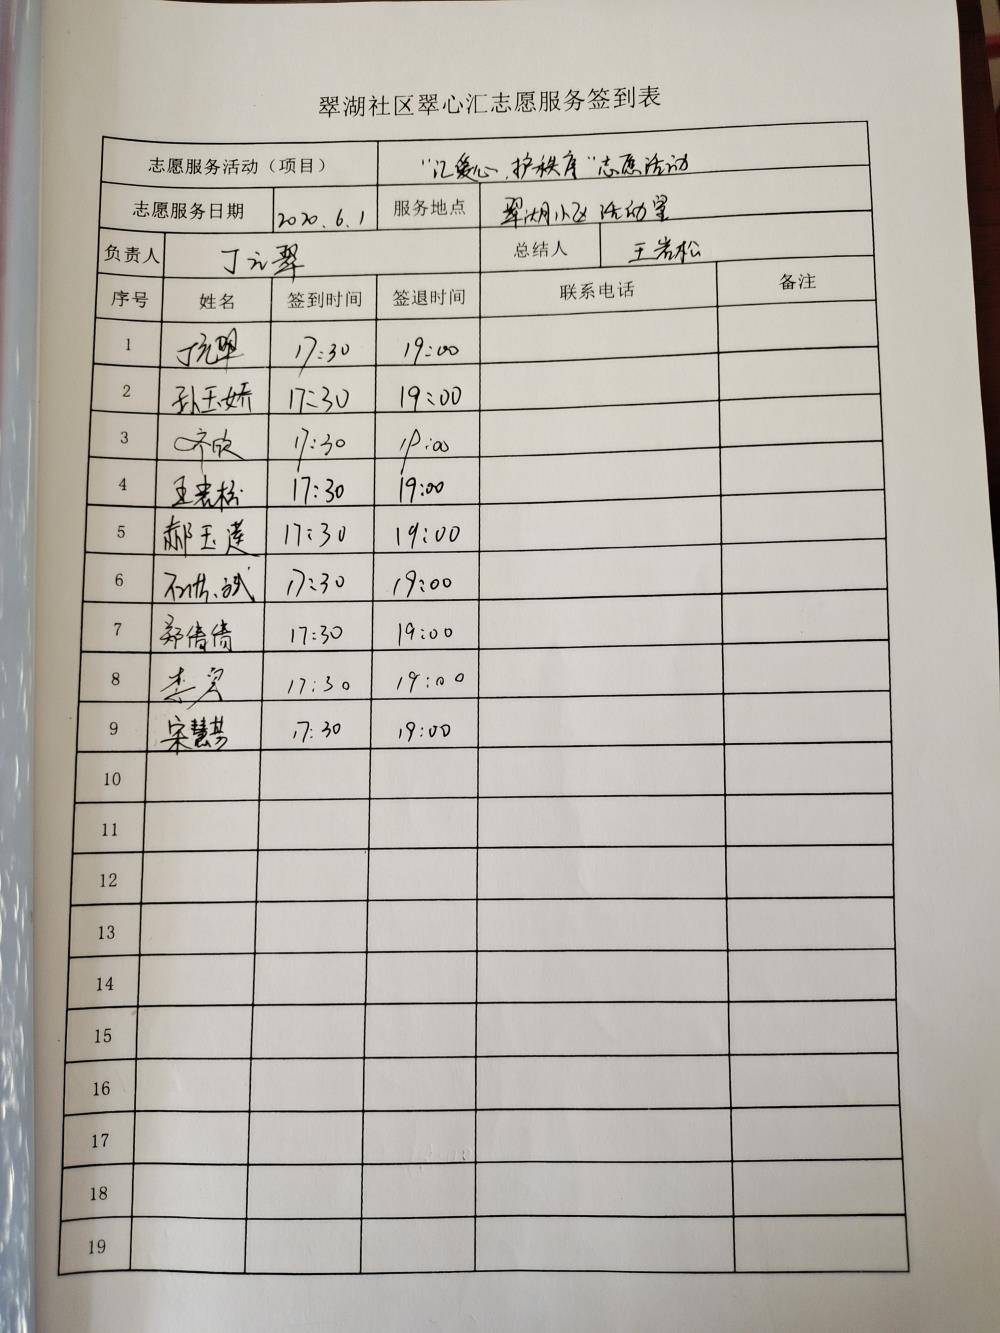 翠湖社区翠心汇志愿服务签到表
志愿服务活动（项目） “汇爱心、护秩序”志愿活动
志愿服务日期 2020.6.1 服务地点 翠湖小区活动室
负责人 丁元翠 总结人 王岩松
序号 姓名 签到时间 签退时间 联系电话 备注
1 丁元翠 17:30 19:00
2 孙玉娇 17:30 19:00
3 齐欣 17:30 19:00
4 王岩松 17:30 19:00
5 郝玉莲 17:30 19:00
6 17:30 19:00
7 郑倩倩 17:30 19:00
8 17:30 19:00
9 宋慧 17:30 19:00
10
11
12
13
14
15
16
17
18
19